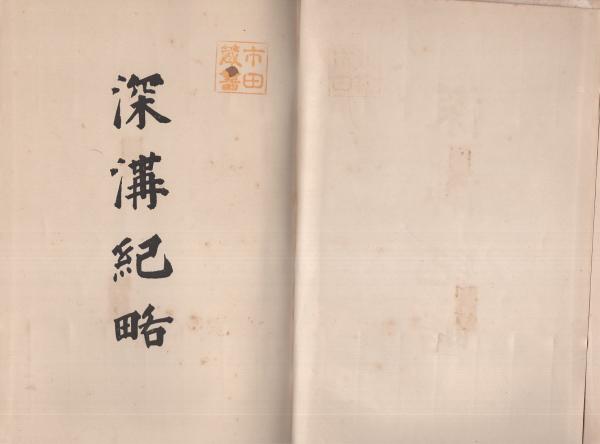 深溝紀略
市田
蔵書